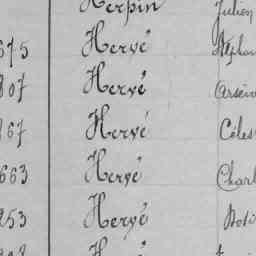 Herpin Julien
675 Hervé
807 Hervé Arsène
867 Hervé Céles
663 Hervé Charl
253 Hervé